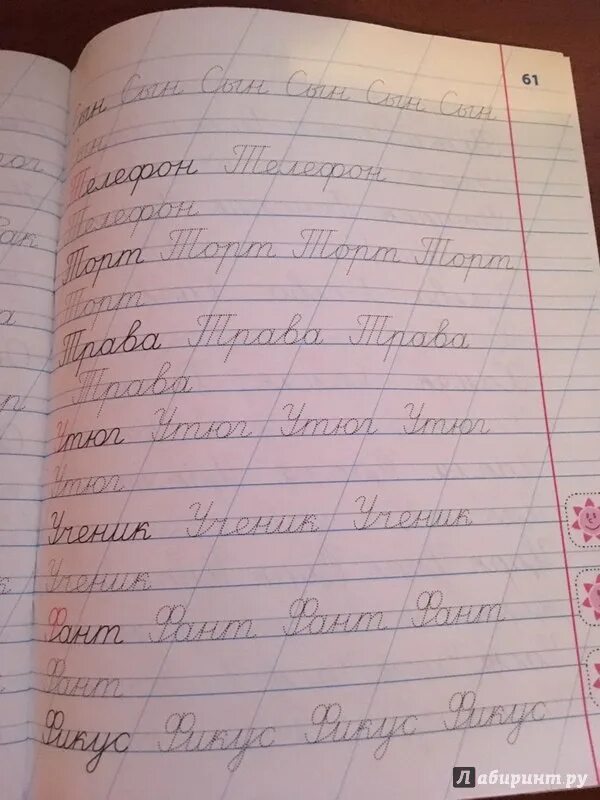 61
Сын Сын Сын Сын Сын Сын
Сын
Телефон Телефон
Телефон
Торт Торт Торт Торт
Торт
Трава Трава Трава
Трава
Утюг Утюг Утюг Утюг
Утюг
Ученик Ученик Ученик
Ученик
Фант Фант Фант Фант
Фант
Фикус Фикус Фикус Фикус
Лабиринт.ру